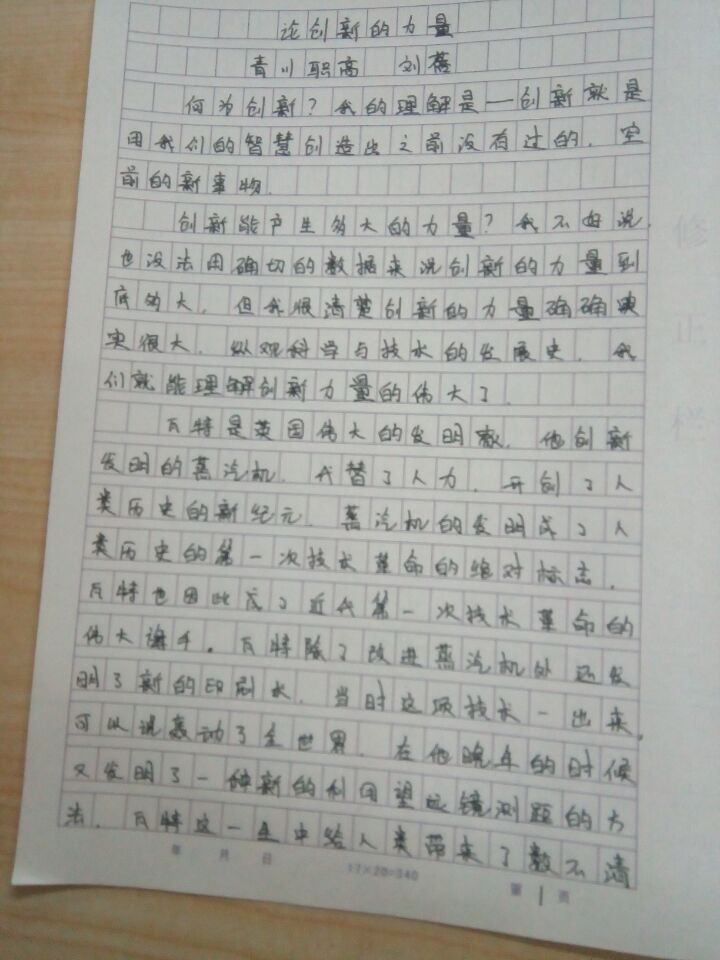 论创新的力量
青川职高 刘蓉
何为创新？我的理解是——创新就是
用我们的智慧创造出之前没有过的，空
前的新事物。
创新能产生多大的力量？我不好说，
也没法用确切的数据来说创新的力量到
底多大，但我很清楚创新的力量确确实
实很大，纵观科学与技术的发展史，我
们就能理解创新力量的伟大了。
瓦特是英国伟大的发明家，他创新
发明的蒸汽机，代替了人力，开创了人
类历史的新纪元。蒸汽机的发明成了人
类历史的第一次技术革命的绝对标志，
瓦特也因此成了近代第一次技术革命的
伟大 手。瓦特除了改进蒸汽机处还发
明了新的印刷水，当时这项技术一出来，
可以说轰动了全世界，在他晚年的时候
又发明了一种新的利用望远镜测距的方
法，瓦特这一生中给人类带来了数不清
年 月 日
17×20=340
第1页
修正栏